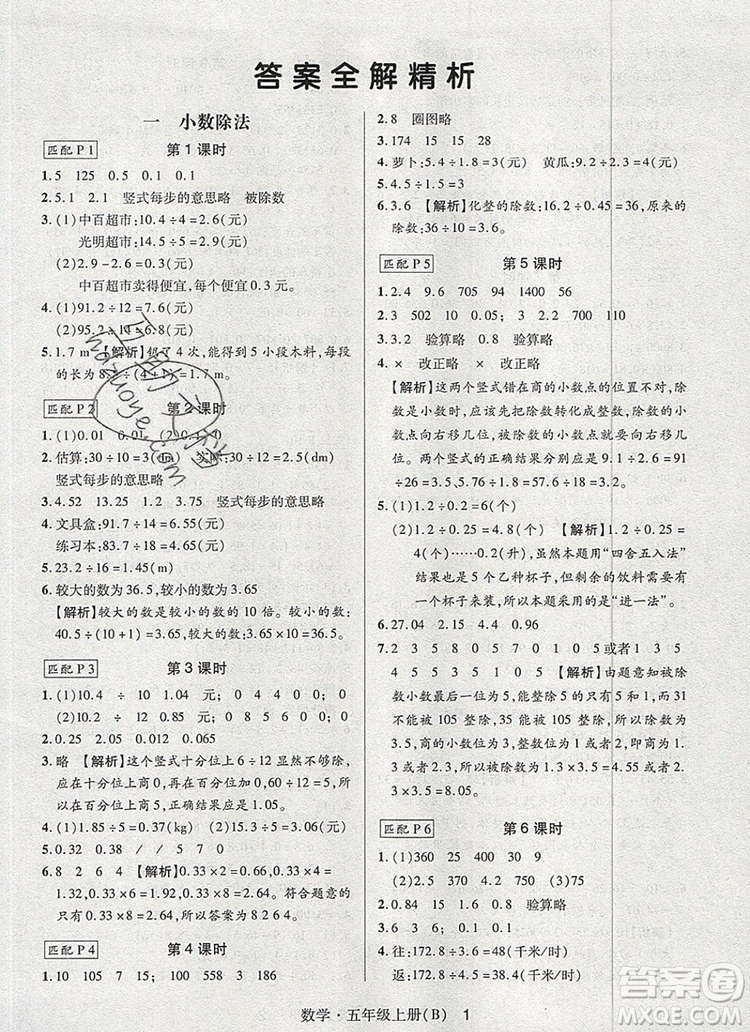 答案全解精析
一 小数除法
匹配P1 第1课时
1.5 125 0.5 0.1 0.1
2.5.1 2.1 竖式每步的意思略 被除数
3.(1)中百超市:10.4÷4=2.6(元)
光明超市:
(2)2.9-2.6=0.3(元)
中百超市卖得便宜,便宜0.3元。
4.(1)91.2÷12=7.6(元)
(2)95.2÷14=6.8(元)
5.1.7 m 【解析】锯了4次,能得到5小段木料,每段
的长为8.5÷(4+1)=1.7 m。
匹配P2 第2课时
1.(1)0.01 0.01 (2)0.1
2.估算:30÷10=3(dm) 实际:30÷12=2.5(dm)
竖式每步的意思略
3.4.52 13.25 1.2 3.75 竖式每步的意思略
4.文具盒:91.7÷14=6.55(元)
练习本:
5.23.2÷16=1.45(m)
6.较大的数为36.5,较小的数为3.65
【解析】较大的数是较小的数的10倍。较小的数为:
40.5÷(10+1)=3.65,较大的数为3.65×10=36.5。
匹配P3 第3课时
1.(1)10.4 ÷ 10 1.04 元; 0 4 400; 0 4
(2)10.8 ÷ 15 0.72 元; 0 8 5 600; 0 4
2.0.25 2.05 0.012 0.065
3.略 【解析】这个竖式十分位上6÷12显然不够除,
应在十分位上商0,再在0.6的末尾添上0,60÷12=
5,所以在百分位上商5,正确结果为1.05。
4.(1)1.85÷5=0.37(kg)
5.0.32 0.38 / / 5 170
6.8 2 91 6 【解析】0.33×2=0.66,0.33×4=
1.32,0.33×6=1.98,0.33×8=2.64。符合题意
的只有0.33×8=2.64,所以答案为8 2 91 6。
匹配P4 第4课时
1.10 105 7 15; 100 558 3 186
2.8 圈图略
3.174 15 15 28
4.萝卜:1.2÷0.8=1.5(元) 黄瓜:9.12÷2.4=3.8(元)
5.4.5÷0.15=30(天)
6.3.6 【解析】化整的除数:16.2÷0.45=36,原来的
除数:36÷10=3.6。
匹配P5 第5课时
1.2.4 9.6 705 94 1400 56
2.3 502 10 0.05; 3 2.2 700 110
3.3.2 验算略 0.9 验算略
4.× 改正略 × 改正略
【解析】这两个竖式错在商的小数点的位置不对,除
数是小数时,应该先把除数转化成整数,除数的小
数点向右移几位,被除数的小数点也应向右移几
位。两个竖式的正确结果分别应是9.1÷2.6=91
÷26=3.5和7.2÷0.45=720÷45=16。
5.(1)1.2÷0.2=6(个)
(2)1.2÷0.25=4.8(个) 【解析】1.2÷0.25=4
(个)……0.2(升),虽然本题用“四舍五入法”
结果也是5个乙种杯子,但剩余的饮料需要用
一个杯子来装,所以本题应用“进一法”。
6.27.04 2.15 4.4 0.96
7.2 6 5 3 5 1 0 5 0 1 3 5
4 5 5 3 5 1 0 5 0 【解析】由题意知被除
数小数最后一位为5,能整除的只有5,而31
不能被105整除,35能被105整除,所以除数
是3.5。因为1.2×3.5=4.2,1.3×3.5=4.55,
1.4×3.5=4.9,所以商是1.3,即1.3×3.5=
4.55。
匹配P6 第6课时
1.(1)360 25 400 30 9
(2)3.50 4.00 4.30 4.2 750 (3)75
2.0.84 15 1.6 0.8 验算略
3.< > > < 6 1 0.1
4.往:172.8÷3.2=54(千米/时)
返:172.8÷3.6=48(千米/时)
数学·五年级上册(B) 1
答案圈
MXQE.COM